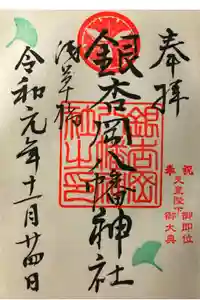 奉拝
祝
天皇陛下
御即位
奉
御大典
浅草橋
銀杏岡八幡神社
令和元年十一月廿四日